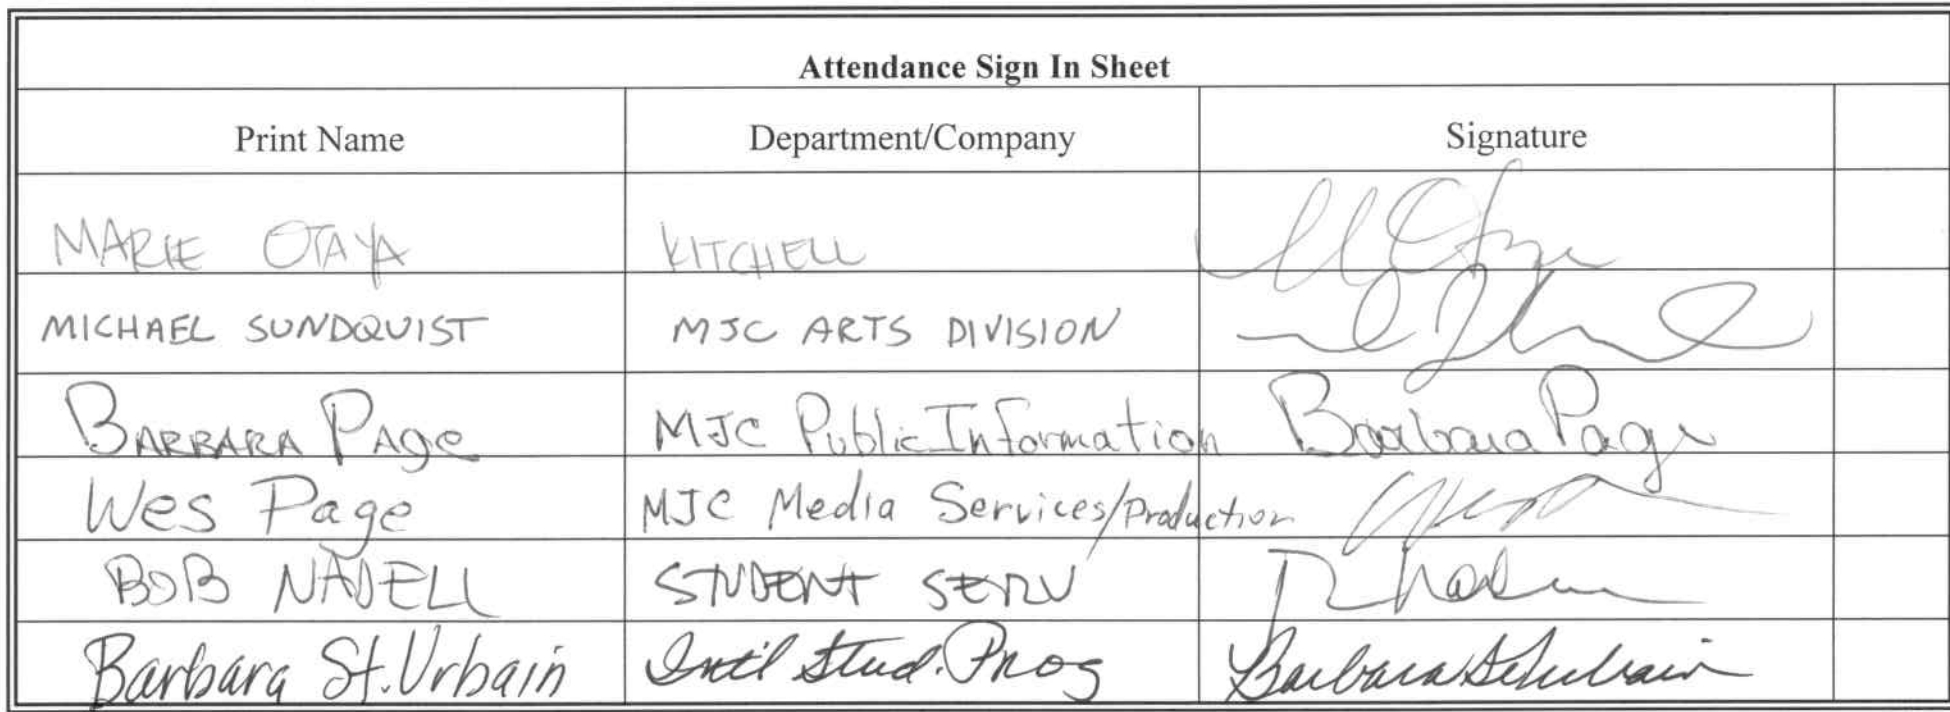 Attendance Sign In Sheet
Print Name Department/Company Signature
MARIE OTAYA KITCHELL
MICHAEL SUNDQUIST MJC ARTS DIVISION
BARBARA PAge MJC Public Information Barbara Page
Wes Page MJC Media Services/Production
BOB NADELL STUDENT SERV
Barbara St. Urbain Int'l Stud. Prog Barbara St Urbain